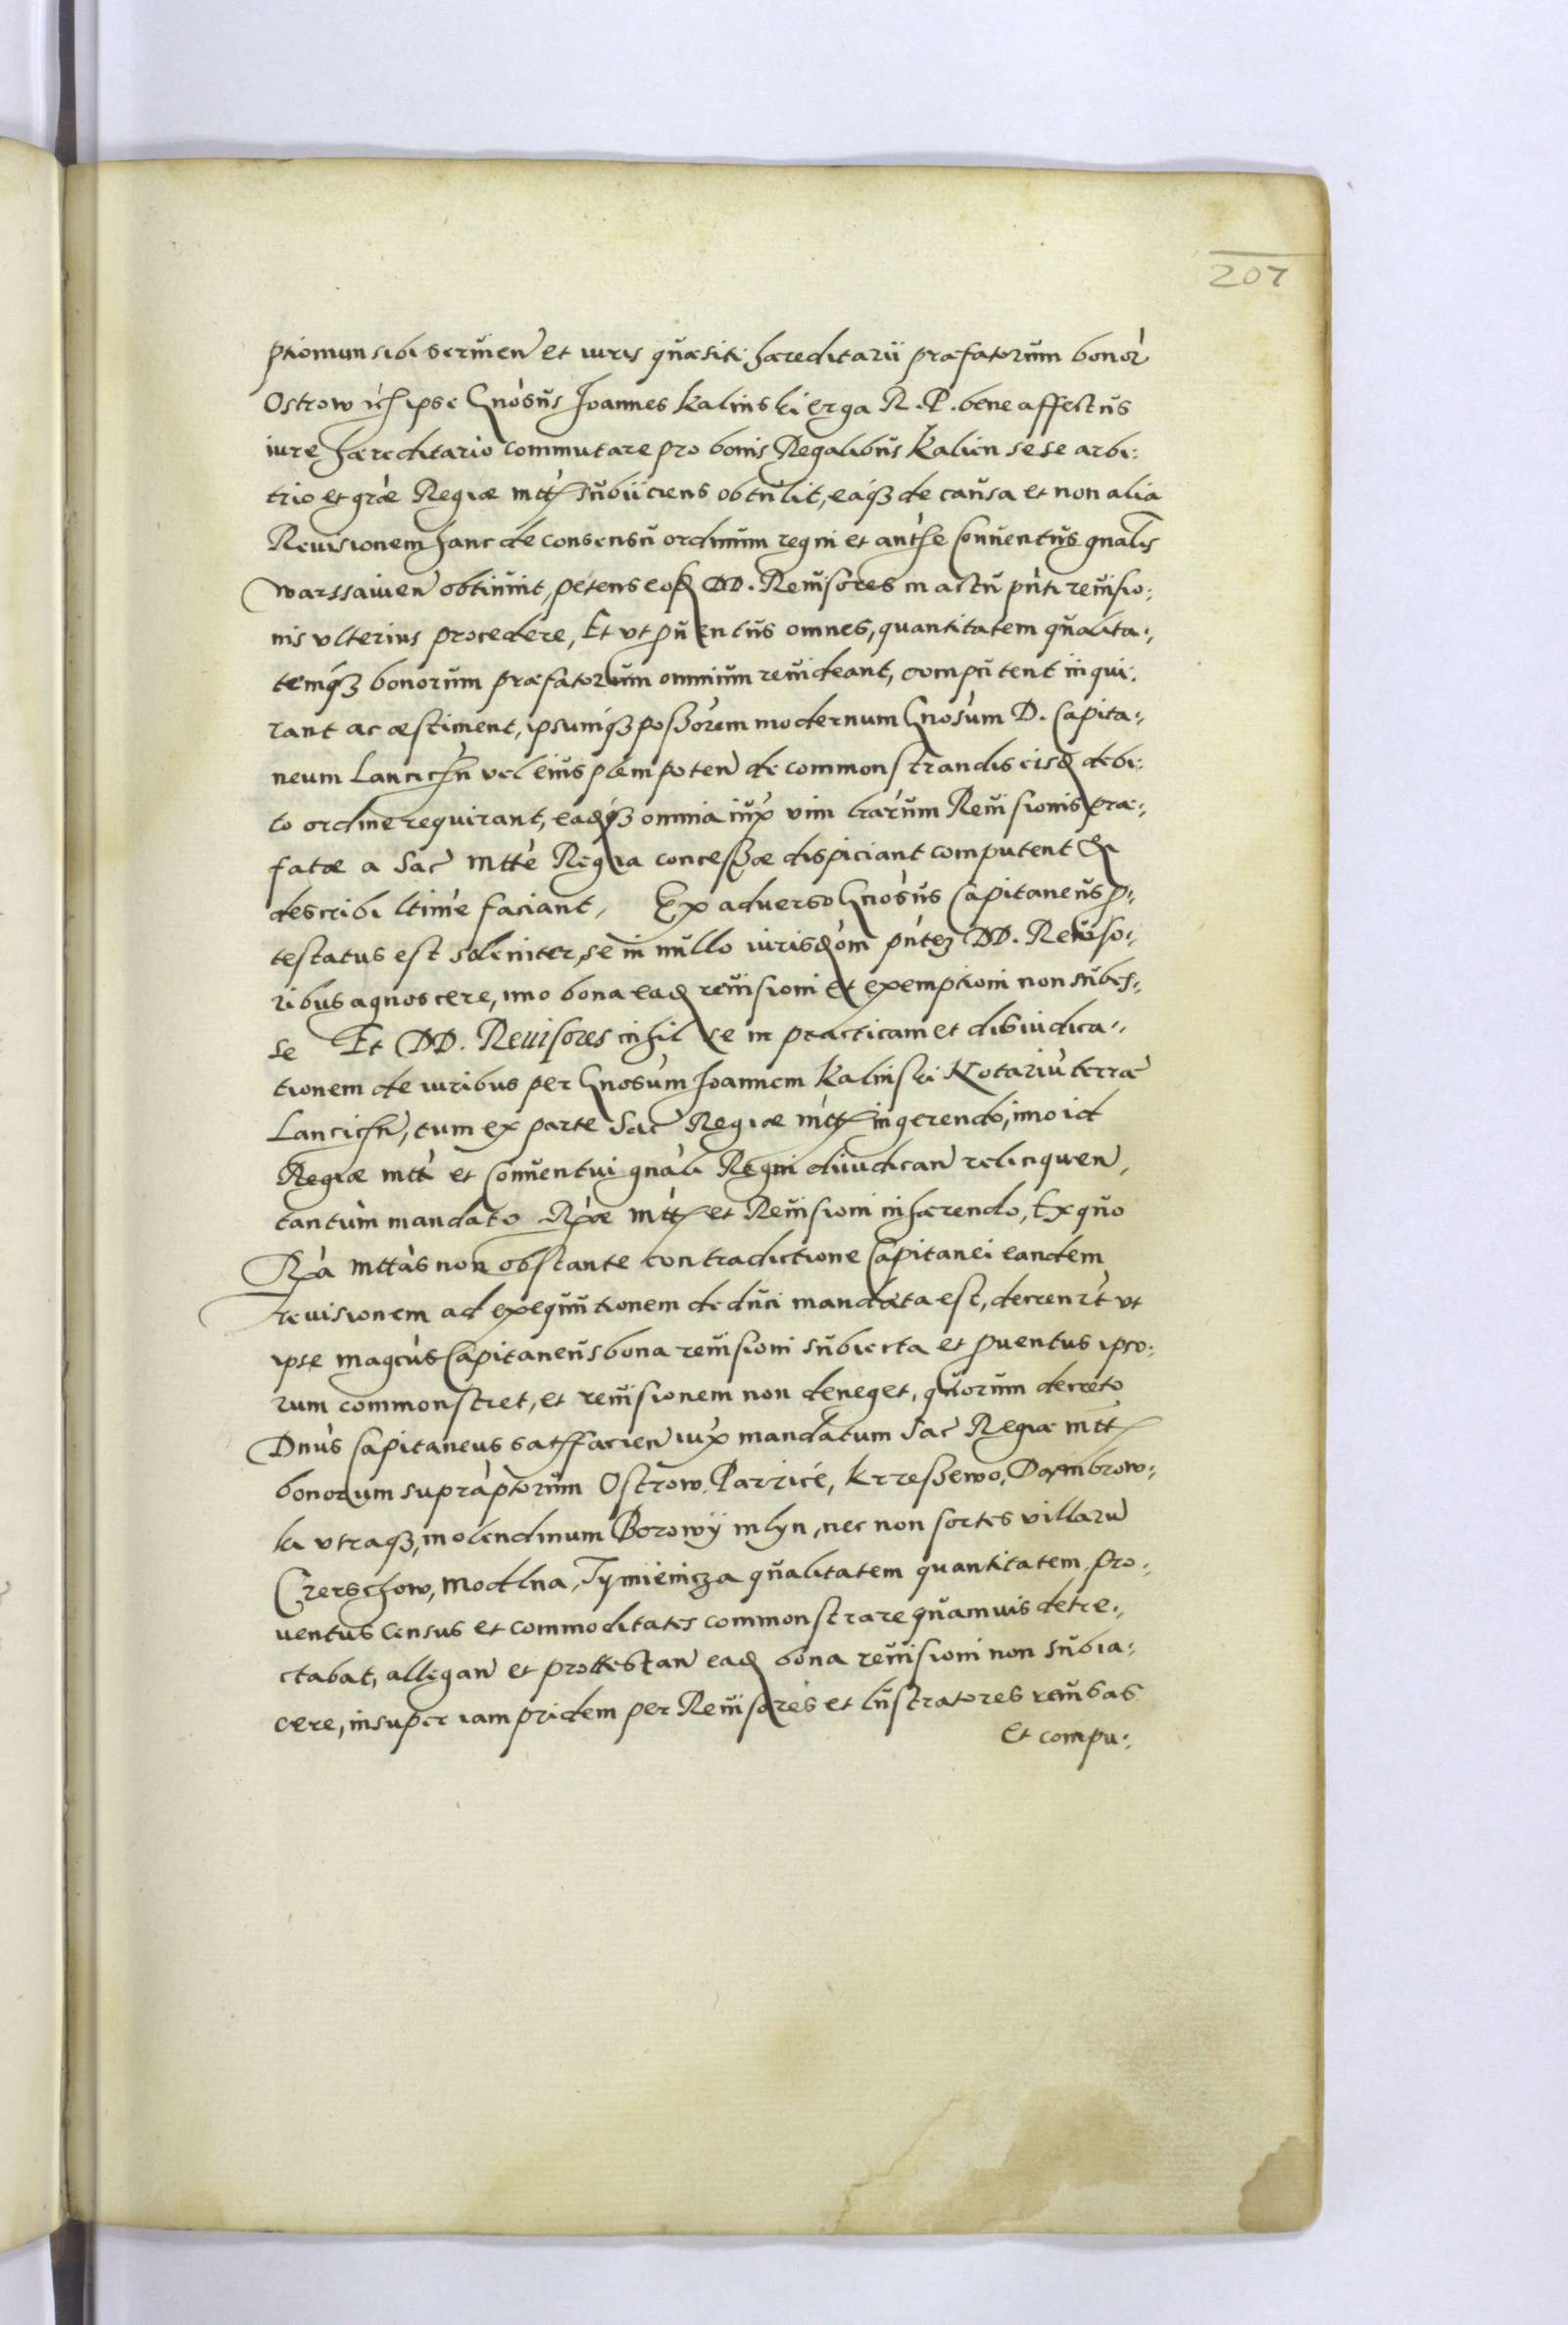 207
ptionum sibi servien et iuris quæsiti hæreditarii præfatorum bonor
Ostrow ipse Gnosus Joannes Kalinski erga R. P. bene affectus
iure hæreditario commutare pro bonis Regalibus Kalien sese arbi:
trio et græ Regiæ mtt subiiciens obtulit, eaq3 de causa et non alia
Revisionem hanc de consensu ordinum regni et authe Conventus gnalis
warssavien obtinuit, petens eosd DD. Revisores in actu pnti revisio:
nis ulterius procedere, Et ut pventus omnes, quantitatem qualita:
temq3 bonorum præfatorum omnium revideant, computent inqui:
rant ac æstiment, ipsumq3 possorem modernum Gnosum D. Capita:
neum Lancicn vel eius plenipoten de commonstrandis eisd debi:
to ordine requirant, eadq3 omnia iux vim lrarum Revisionis præ:
fatæ a Sac mtte Regia concessæ dispiciant computent &
describi ltime faciant, Ex adverso Gnosus Capitaneus p:
testatus est soleniter, se in nullo iurisdom pntez DD. Reviso:
ribus agnoscere, imo bona ead revisioni et exemptioni non subes:
se Et DD. Revisores nihil se in practicam et diiudica:
tionem de iuribus per Gnosum Joannem Kalinski Notariu terræ
Lancicn, tum ex parte Sac Regiæ mtt ingerendo, imo id
Regiæ mtti et Conventui gnali Regni diiudican relinquen,
tantum mandato Rxæ mtt et Revisioni inhærendo, Ex quo
Rxa mttas non obstante contradictione Capitanei eandem
revisionem ad exequutionem deduci mandata est, decrenrt ut
ipse magcus Capitaneus bona revisioni subiecta et pventus ipso:
rum commonstret, et revisionem non deneget, quorum decreto
Dnus Capitaneus satffacien iux mandatum Sac Regiæ mtt
bonorum supraptorum Ostrow, Parzicé, Krzessewo, Dambrow:
ka utraq3, molendinum Borowÿ mlyn, nec non sortes villaru
Czerschow, Modlna, Tymienicza qualitatem quantitatem pro:
ventus census et commoditates commonstrare quamvis detre:
ctabat, allegan et protestan ead bona revisioni non subia:
cere, insuper iam pridem per Revisores et lustratores revisas
Et compu: